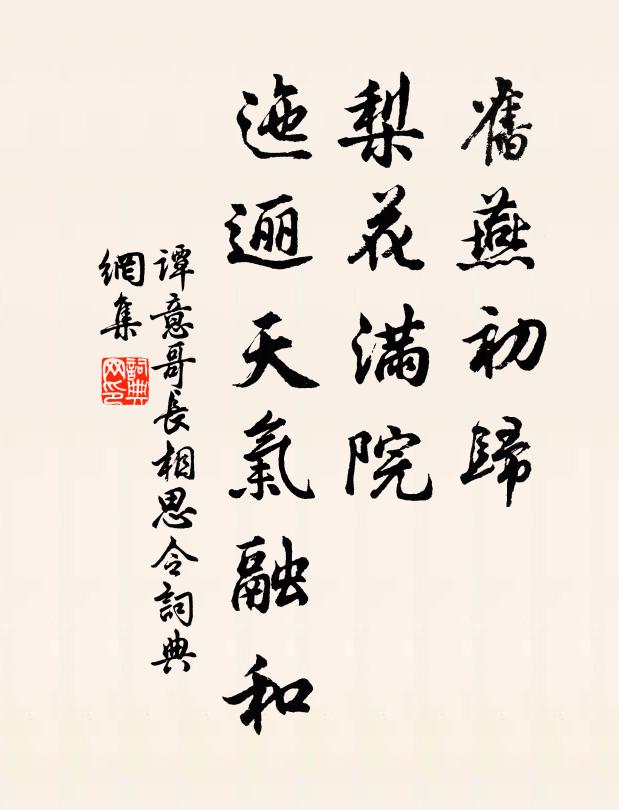 舊燕初歸
梨花滿院
迤邐天氣融和
譚意哥長相思令詞典
網集
詞典
网印